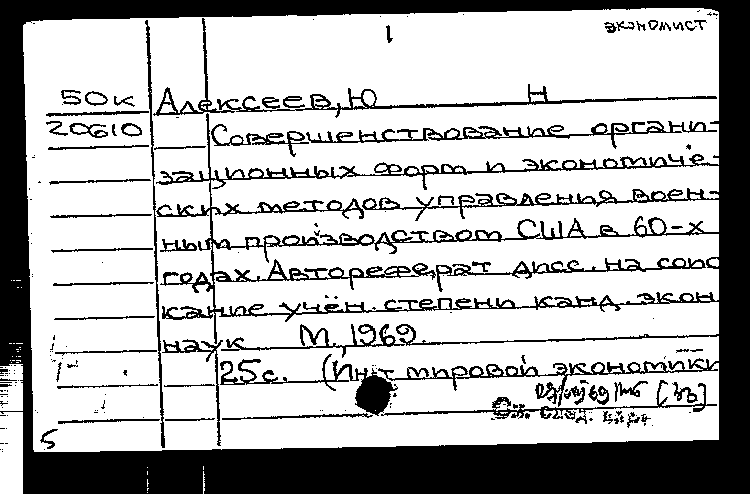 1
экономист
50к Алексеев, Ю Н
20610 Совершенствование органи-
зационных форм и экономиче-
ских методов управления воен-
ным производством США в 60-х
годах. Автореферат дисс. на соис
кание учён. степени канд. экон
наук М., 1969.
25с. (Ин-т мировой экономики
5